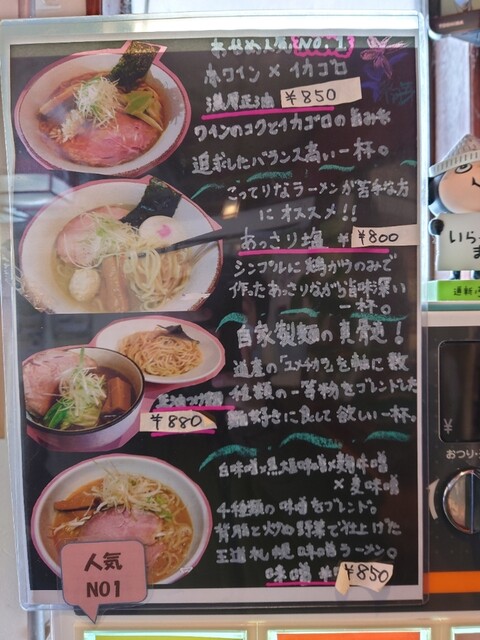 おすすめ人気NO.1
赤ワイン×イカゴロ
濃厚正油 ¥850
ワインのコクとイカゴロの旨みを
追求したバランス高い一杯。
こってりなラーメンが苦手な方
にオススメ!!
あっさり塩 ¥800
シンプルに鶏がらのみで
作ったあっさりながら旨味深い
一杯。
自家製麺の真骨頂!
道産の「ユメチカラ」を軸に数
種類の一等粉をブレンドした
麺好きに食して欲しい一杯。
正油つけ麺
¥880
白味噌×黒大豆味噌×麹味噌
×麦味噌
4種類の味噌をブレンド。
背脂と炒め野菜で仕上げた
王道札幌味噌ラーメン。
味噌 ¥850
人気
NO1
いら
ま
¥
おつり